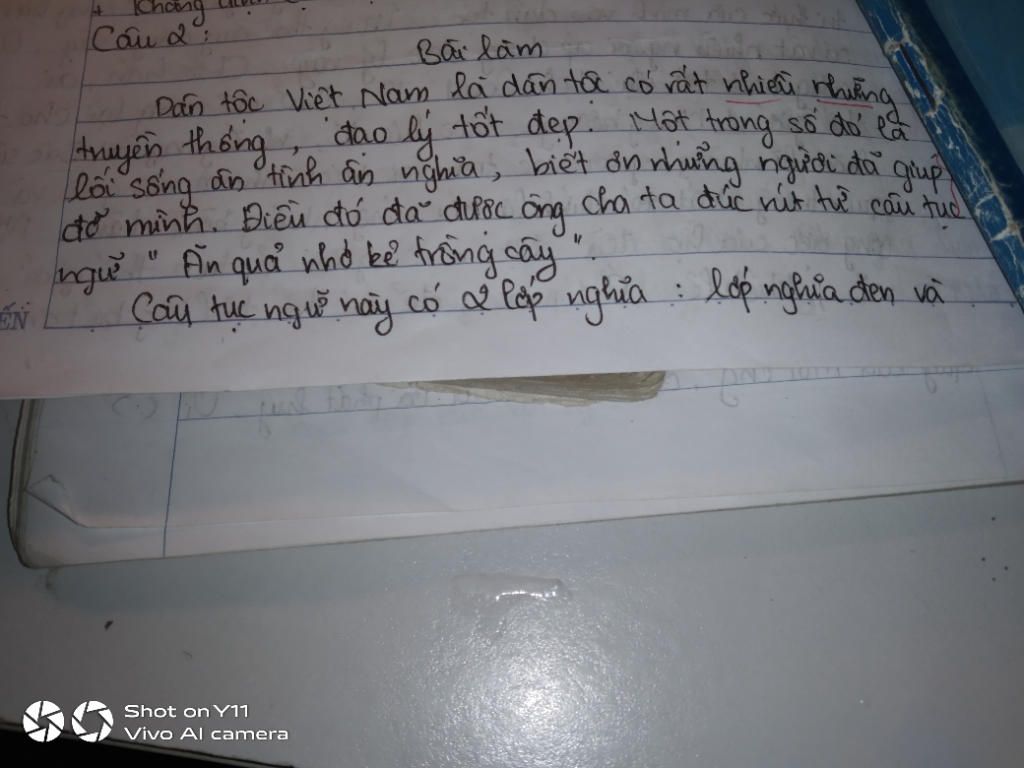 + Không
Câu 2:
Bài làm
Dân tộc Việt Nam là dân tộc có rất nhiều những
truyền thống, đạo lý tốt đẹp. Một trong số đó là
lối sống ân tình ân nghĩa, biết ơn những người đã giúp
đỡ mình. Điều đó đã được ông cha ta đúc rút từ câu tục
ngữ "Ăn quả nhớ kẻ trồng cây".
Câu tục ngữ này có 2 lớp nghĩa: lớp nghĩa đen và
ẾN
Shot on Y11
Vivo AI camera